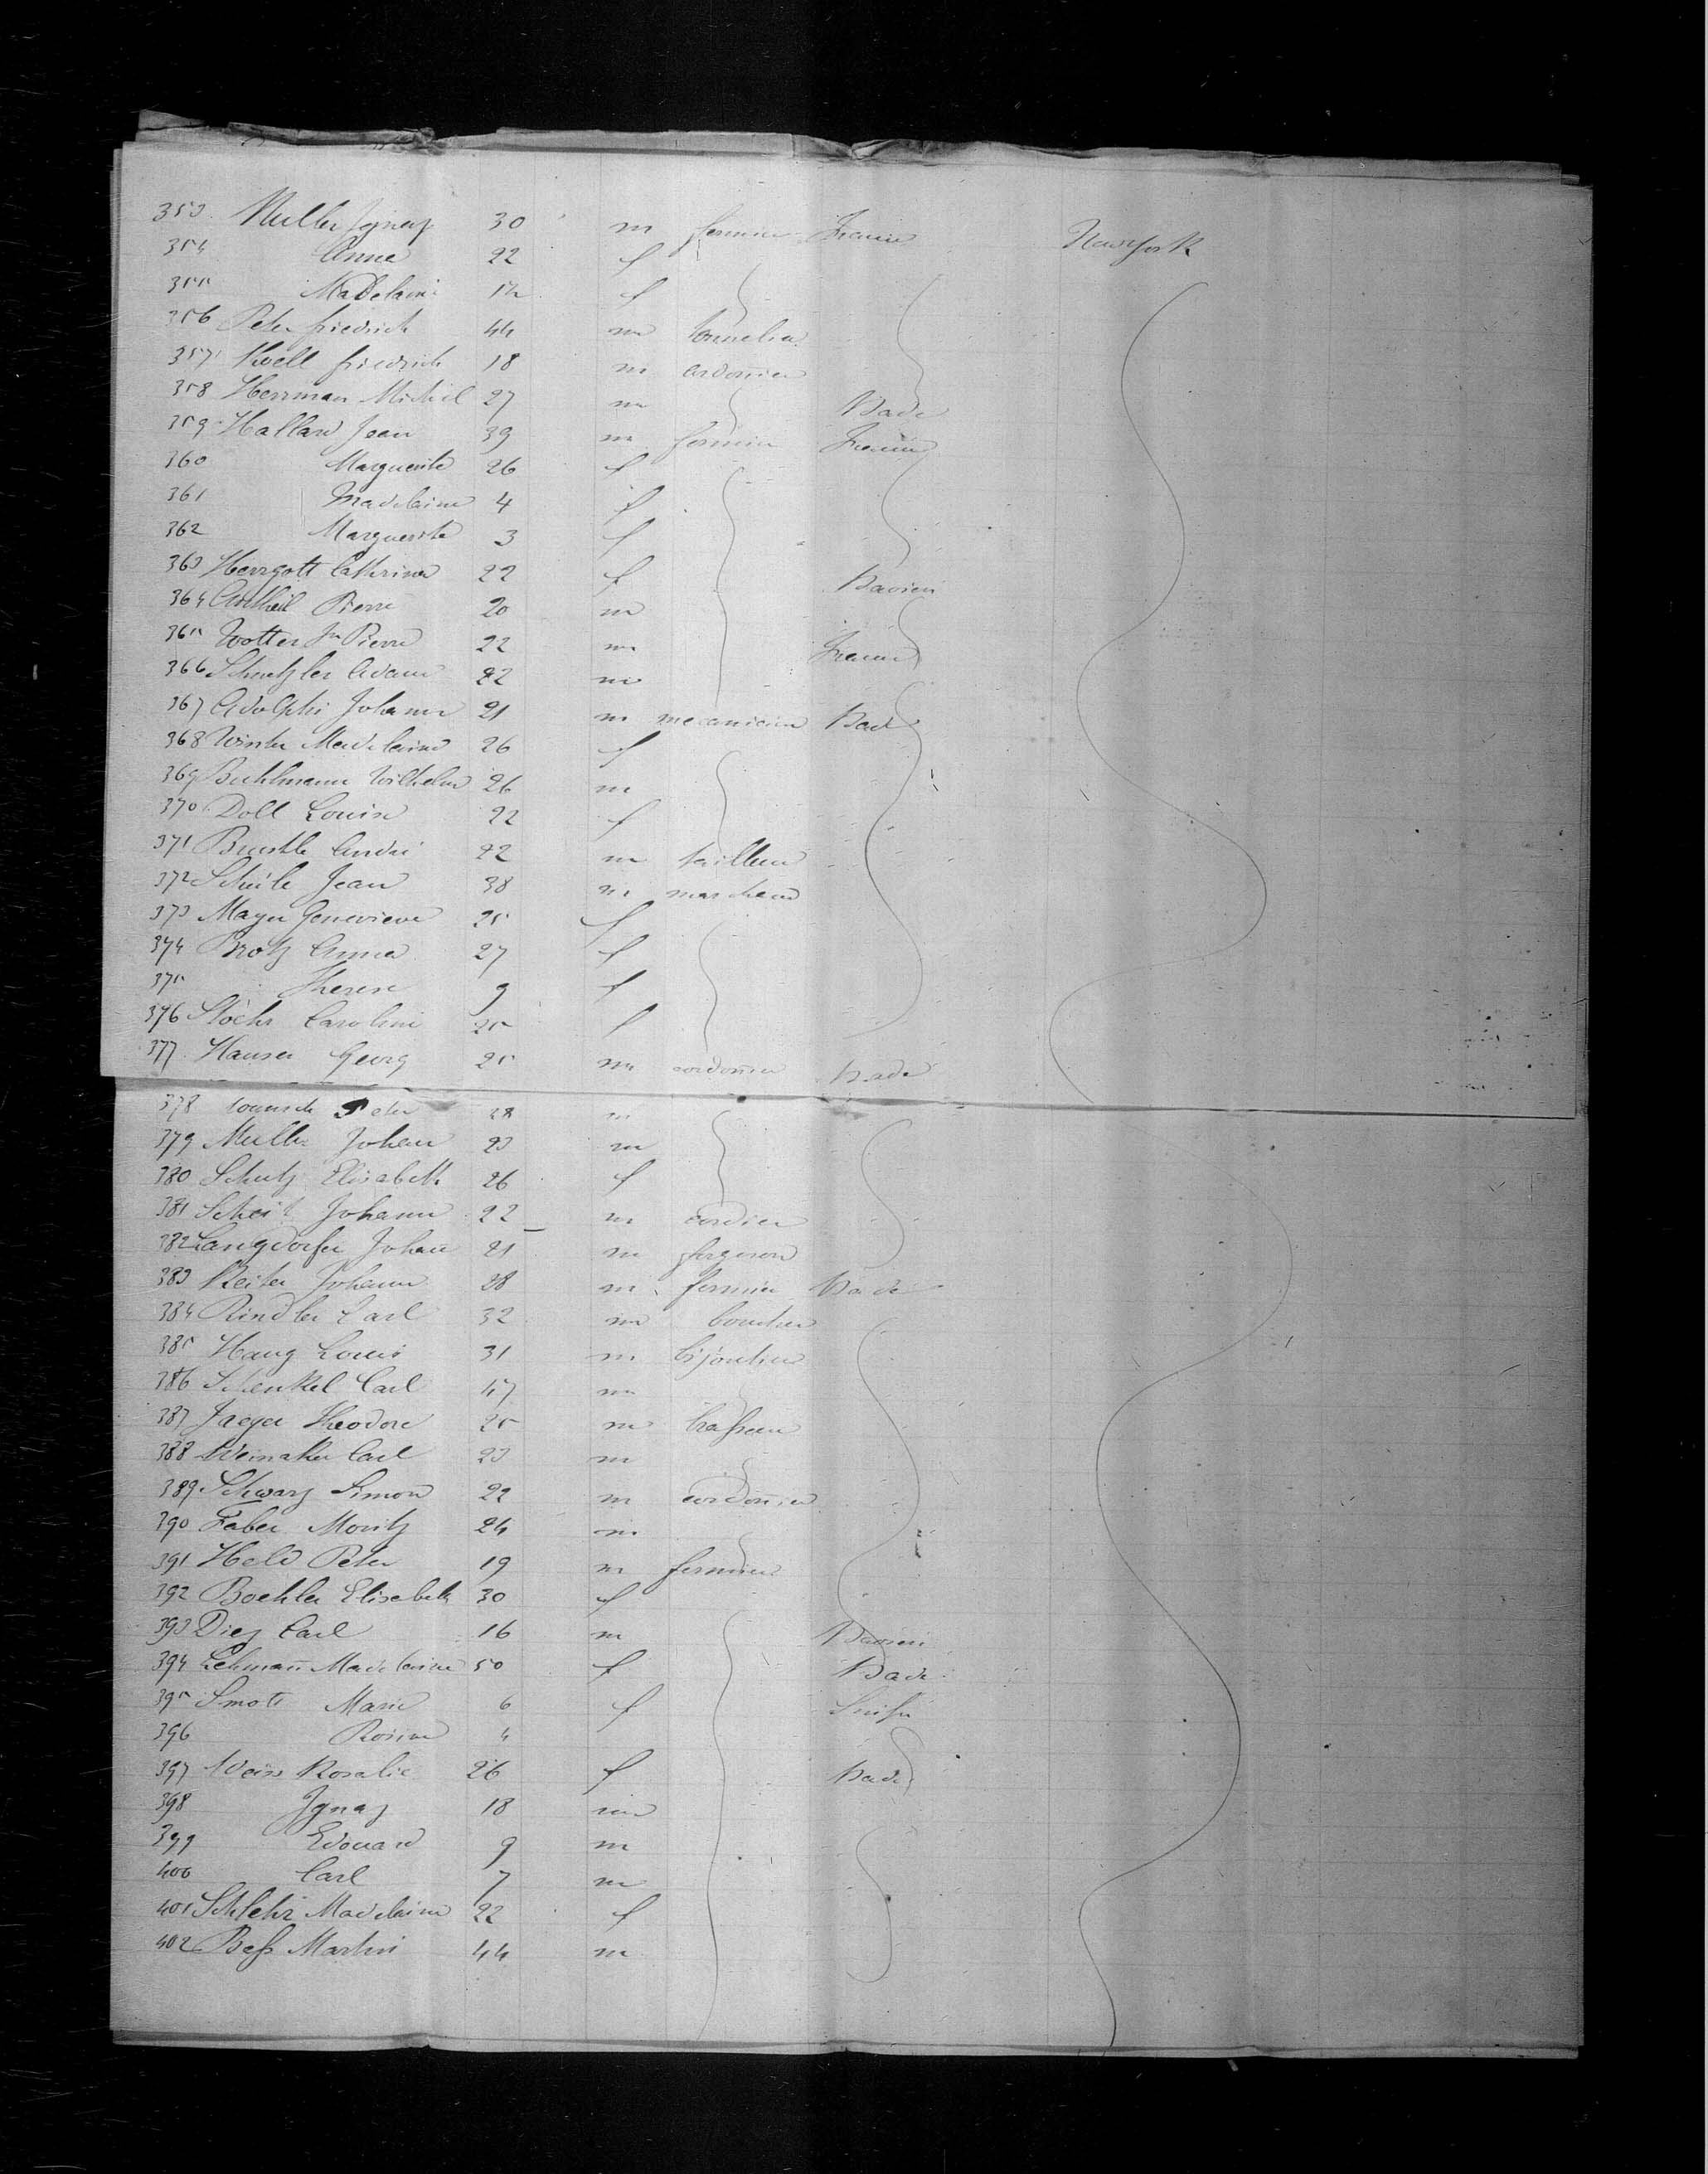 353. Muller Ignaz 30 m fermier France Newyork
354 Anna 22 f
355 Madelaine f
356 Peter friedrich 44 m tonnelier
357 Knell friedrich 18 m cordonnier
358 Herrman Michel 27 m Bade
359 Hallard Jean 39 m fermier France
360 Marguerite 26 f
361 Madelaine 4 f
362 Marguerite 3 f
363 Herrgott Cathrine 22 f Baviere
364 Pierre 20 m
365 Wotter Jn Pierre 22 m France
366 Schnetzler Adam 22 m
367 Adolphi Johann 21 m mecanicien Bade
368 Winter Madelaine 26 f
369 Buhlmann Wilhelm 26 m
370 Doll Louise 22 f
371 Brustle André 22 m tailleur
372 Scheile Jean 38 m marchand
373 Mayer Genevieve 25 f
374 Brotz Anna 27 f
375 Therese 9 f
376 Stöchr Caroline 25 f
377. Hauser Georg 25 m cordoñier Bade
378 Wunsch Peter 28 m
379 Muller Johan 23 m
380 Schutz Elisabeth 26 f
381 Scheit Johann 22 m cordier
382 Langdorfer Johan 21 m forgeron
383 Reiter Johann 28 m fermier Bade
384 Rindler Carl 32 m boucher
385 Haug Louis 31 m bijoutier
386 Schenkel Carl 47 m
387 Jaeger Theodore 25 m braßeur
388 Carl 23 m
389 Schwarz Simon 22 m cordoñier
390 Faber Moritz 24 m
391 Held Peter 19 m fermier
392 Boehler Elisabeth 30 f
393 Diez Carl 16 m Baviere
394 Lehmañ Madelaine 50 f Bade
395 Smots Marie 6 f Suiße
396 Rosine 4
397 Weiss Rosalie 26 f Bade
398 Ignaz 18 m
399 Edouard 9 m
400 Carl 7 m
401 Schlehr Madelaine 22 f
402 Beß Martin 44 m